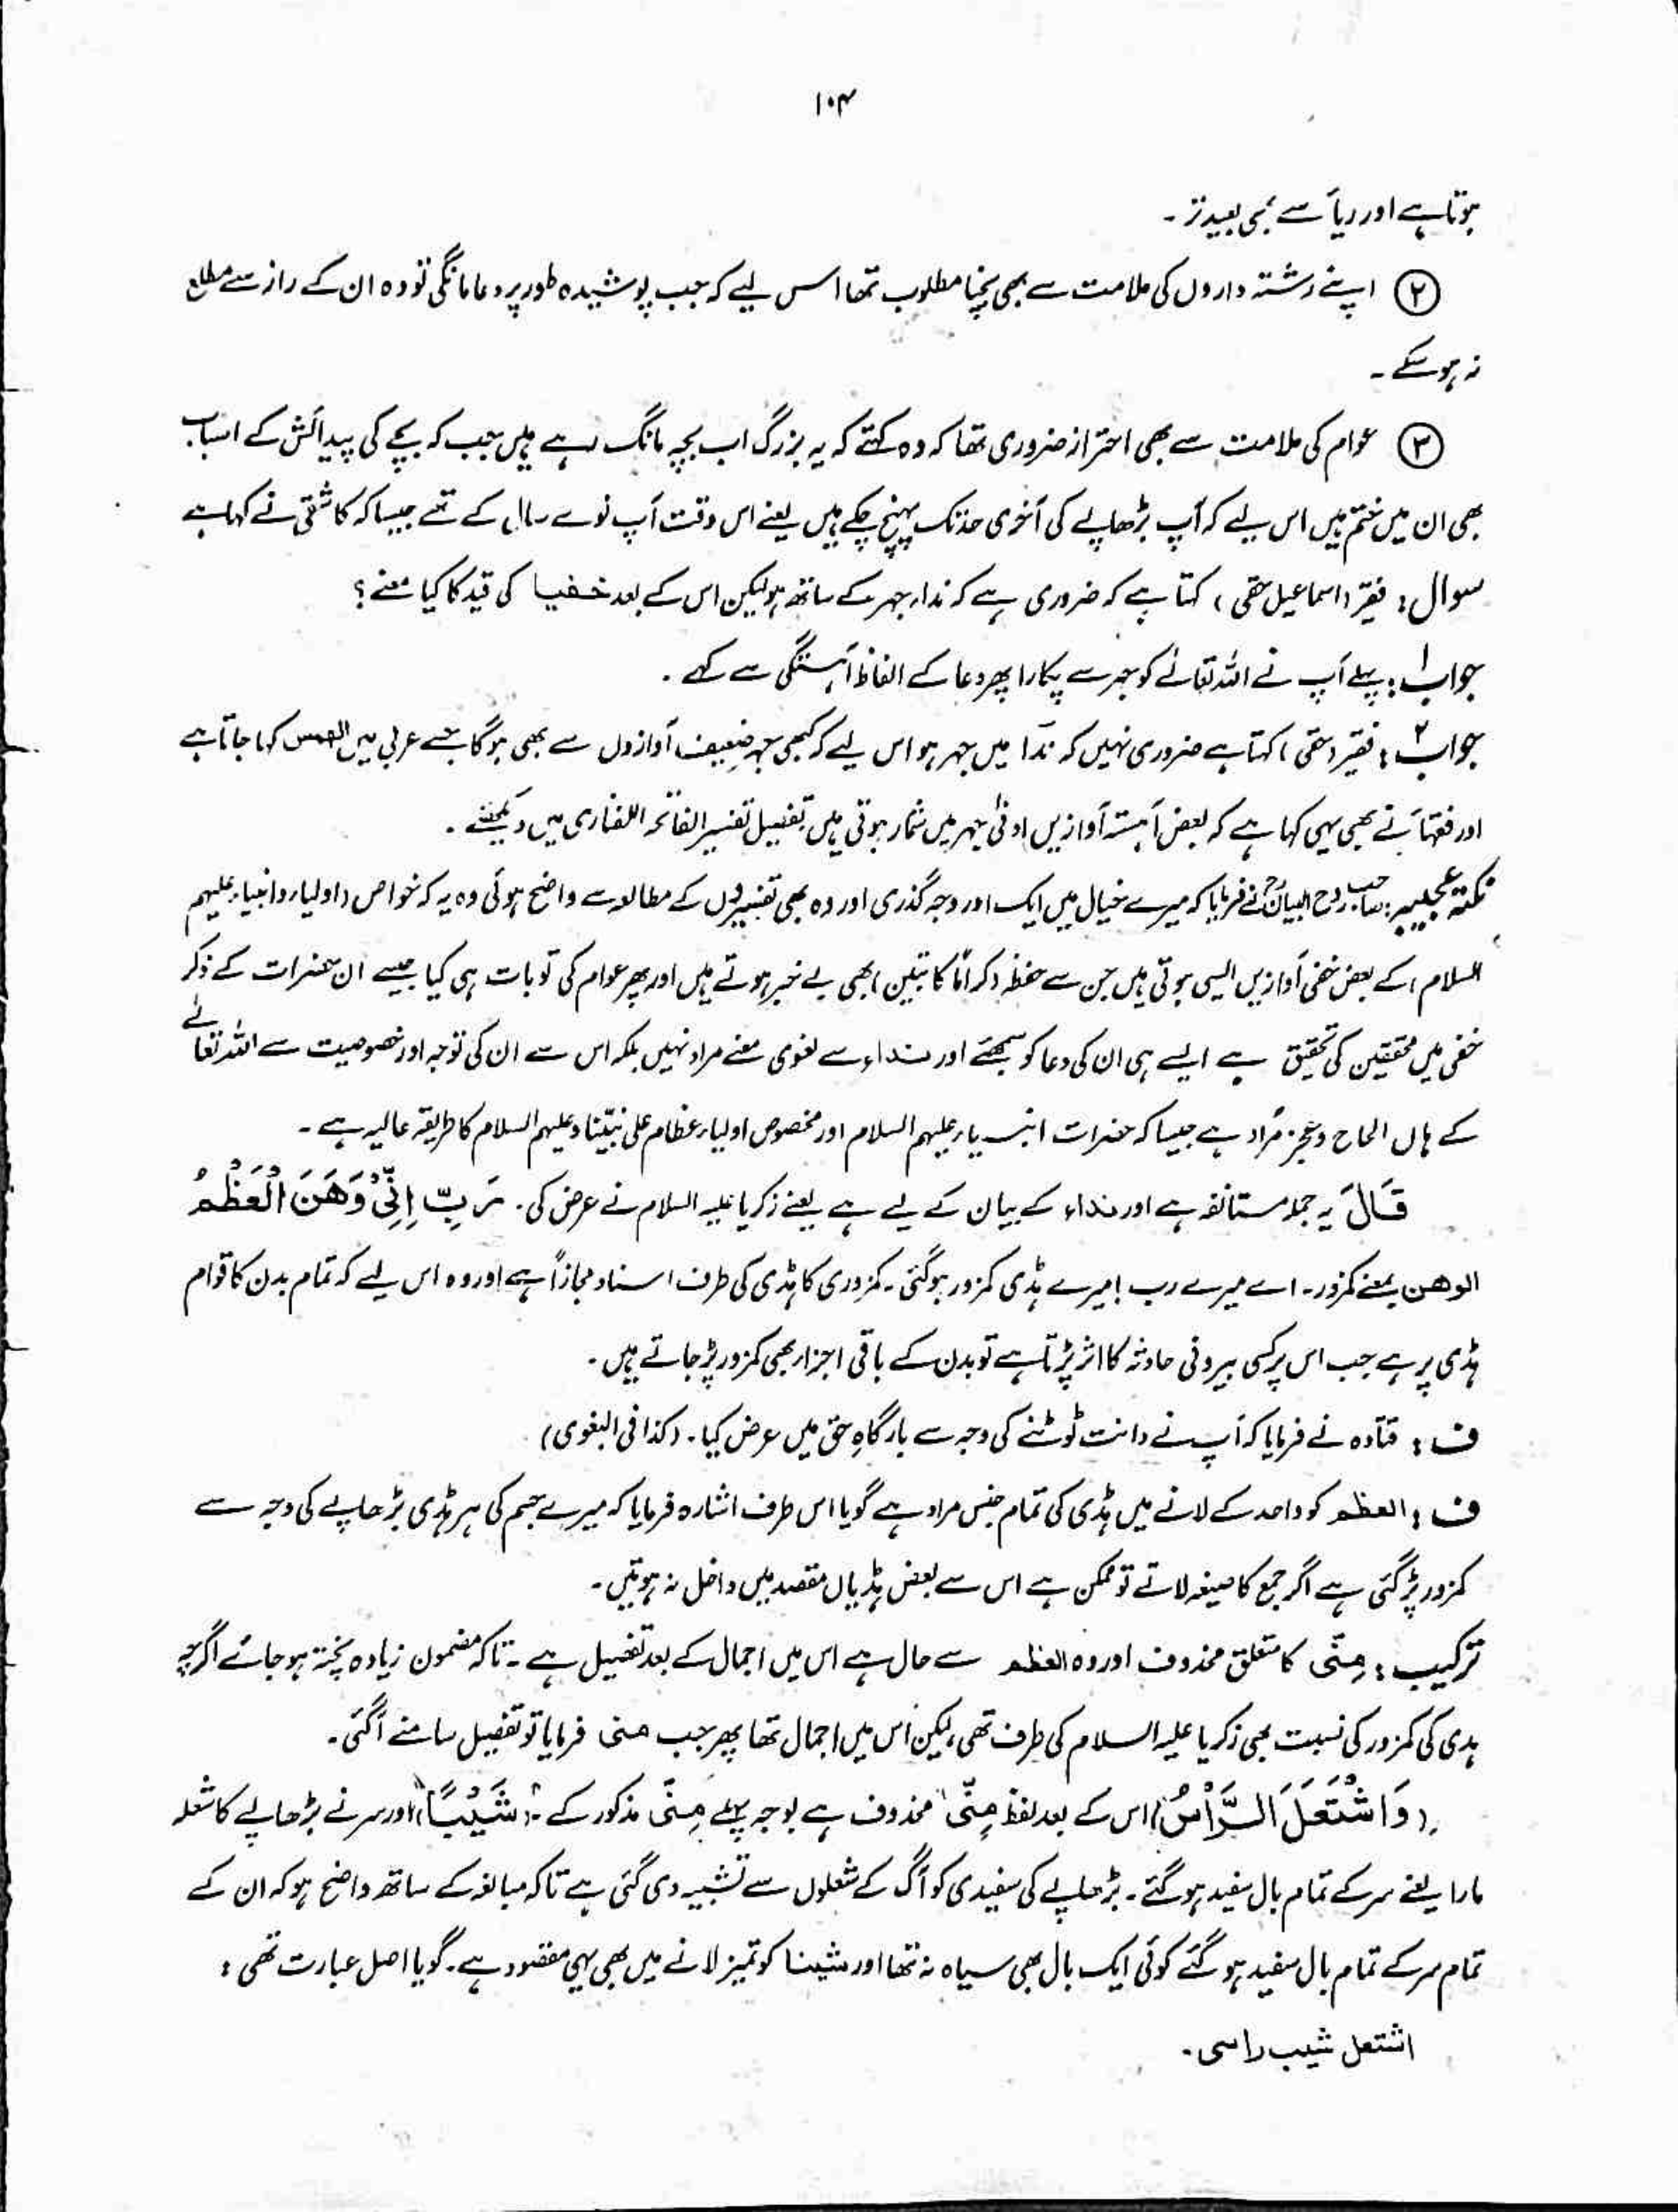 ۱۰۴
ہوتا ہے اور ریاٴ سے بھی بعید تر ۔
② اپنے رشتہ داروں کی ملامت سے بھی بچنا مطلوب تھا اس لیے کہ جب پوشیدہ طور پر دعا مانگی تو وہ ان کے راز سے مطلع
نہ ہو سکے ۔
③ عوام کی ملامت سے بھی احتراز ضروری تھا کہ وہ کہتے کہ یہ بزرگ اب بچہ مانگ رہے ہیں جب کہ بچے کی پیدائش کے اسباب
بھی ان میں ختم ہیں اس لیے کہ آپ بڑھاپے کی آخری حد تک پہنچ چکے ہیں یعنے اس وقت آپ نوے سال کے تھے جیسا کہ کاشفی نے کہا ہے
سوال : فقیر (اسماعیل حقی) کہتا ہے کہ ضروری ہے کہ نداء جہر کے ساتھ ہو لیکن اس کے بعد خفیا کی قید کا کیا معنے ؟
جواب ۱ : پہلے آپ نے اللہ تعالےٰ کو جہر سے پکارا پھر دعا کے الفاظ آہستگی سے کہے ۔
جواب ۲ : فقیر (حقی) کہتا ہے ضروری نہیں کہ ندا میں جہر ہو اس لیے کہ کبھی جہر ضعیف آوازوں سے بھی ہو گا جسے عربی میں الھمس کہا جاتا ہے
اور فقہاٴ نے بھی یہی کہا ہے کہ بعض آہستہ آوازیں ادنیٰ جہر میں شمار ہوتی ہیں تفصیل تفسیر الفاتحہ للفناری میں دیکھئے ۔
نکتہ عجیبہ : صاحب روح البیانؒ نے فرمایا کہ میرے خیال میں ایک اور وجہ گذری اور وہ بھی تفسیروں کے مطالعہ سے واضح ہوئی وہ یہ کہ خواص (اولیاء و انبیاء علیہم
السلام) کے بعض خفی آوازیں ایسی ہوتی ہیں جن سے حفظہ (کراماً کاتبین) بھی بے خبر ہوتے ہیں اور پھر عوام کی تو بات ہی کیا جیسے ان حضرات کے ذکر
خفی میں محققین کی تحقیق ہے ایسے ہی ان کی دعا کو سمجھئے اور نداء سے لغوی معنے مراد نہیں بلکہ اس سے ان کی توجہ اور خصوصیت سے اللہ تعالےٰ
کے ہاں الحاح و عجز مراد ہے جیسا کہ حضرات انبیاء علیہم السلام اور مخصوص اولیاء عظام علی نبیّنا و علیہم السلام کا طریقہ عالیہ ہے ۔
قَالَ یہ جملہ مستانفہ ہے اور نداء کے بیان کے لیے ہے یعنے زکریا علیہ السلام نے عرض کی ۔ رَبِّ اِنِّیْ وَھَنَ الْعَظْمُ
الوھن بمعنے کمزور ۔ اے میرے رب ! میرے ہڈی کمزور ہو گئی ۔ کمزوری کا ہڈی کی طرف اسناد مجازاً ہے اور وہ اس لیے کہ تمام بدن کا قوام
ہڈی پر ہے جب اس پر کسی بیرونی حادثہ کا اثر پڑتا ہے تو بدن کے باقی اجزاء بھی کمزور پڑ جاتے ہیں ۔
ف : قتادہ نے فرمایا کہ آپ نے دانت ٹوٹنے کی وجہ سے بارگاہِ حق میں عرض کیا ۔ (کذا فی البغوی)
ف : العظم کو واحد کے لانے میں ہڈی کی تمام جنس مراد ہے گویا اس طرف اشارہ فرمایا کہ میرے جسم کی ہر ہڈی بڑھاپے کی وجہ سے
کمزور پڑ گئی ہے اگر جمع کا صیغہ لاتے تو ممکن ہے اس سے بعض ہڈیاں مقصد میں داخل نہ ہوتیں ۔
ترکیب : مِنّی کا متعلق محذوف اور وہ العظم سے حال ہے اس میں اجمال کے بعد تفصیل ہے ۔ تاکہ مضمون زیادہ پختہ ہو جائے اگرچہ
ہدی کی کمزور کی نسبت بھی زکریا علیہ السلام کی طرف تھی لیکن اس میں اجمال تھا پھر جب منی فرمایا تو تفصیل سامنے آگئی ۔
(وَاشْتَعَلَ الرَّاْسُ) اس کے بعد لفظ مِنّی محذوف ہے بوجہ پہلے مِنّی مذکور کے ۔ (شَیْبًا) اور سر نے بڑھاپے کا شعلہ
مارا یعنے سر کے تمام بال سفید ہو گئے ۔ بڑھاپے کی سفیدی کو آگ کے شعلوں سے تشبیہ دی گئی ہے تاکہ مبالغہ کے ساتھ واضح ہو کہ ان کے
تمام سر کے تمام بال سفید ہو گئے کوئی ایک بال بھی سیاہ نہ تھا اور شیبا کو تمیز لانے میں بھی یہی مقصود ہے ۔ گویا اصل عبارت تھی :
اشتعل شیب راسی ۔